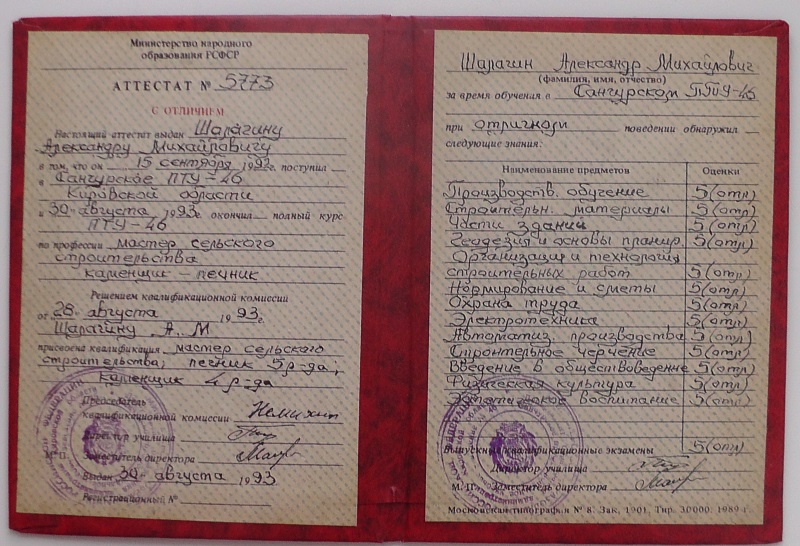 Министерство народного
образования РСФСР
АТТЕСТАТ № 5773
С ОТЛИЧИЕМ
Настоящий аттестат выдан Шалагину
Александру Михайловичу
в том, что он 15 сентября 1992 г. поступил
в Сангурское ПТУ-46
Кировской области
и 30 августа 1993 г. окончил полный курс
ПТУ-46
по профессии мастер сельского
строительства
каменщик - печник
Решением квалификационной комиссии
от 28 августа 1993 г.
Шалагину А. М
присвоена квалификация мастер сельского
строительства; печник 5 р-да;
каменщик 4 р-да
Председатель
квалификационной комиссии
Директор училища
М. П. Заместитель директора
Выдан 30 августа 1993
Регистрационный №
Шалагин Александр Михайлович
(фамилия, имя, отчество)
за время обучения в Сангурском ПТУ-46
при отличном поведении обнаружил
следующие знания:
Наименование предметов Оценки
Производств. обучение 5 (отл)
Строительн. материалы 5 (отл)
Части зданий 5 (отл)
Геодезия и основы планир. 5 (отл)
Организация и технология
строительных работ 5 (отл)
Нормирование и сметы 5 (отл)
Охрана труда 5 (отл)
Электротехника 5 (отл)
Автоматиз. производства 5 (отл)
Строительное черчение 5 (отл)
Введение в обществоведение 5 (отл)
Физическая культура 5 (отл)
воспитание 5 (отл)
Выпускные квалификационные экзамены 5 (отл)
Директор училища
М. П. Заместитель директора
Московская типография № 8. Зак. 1901. Тир. 30000. 1989 г.